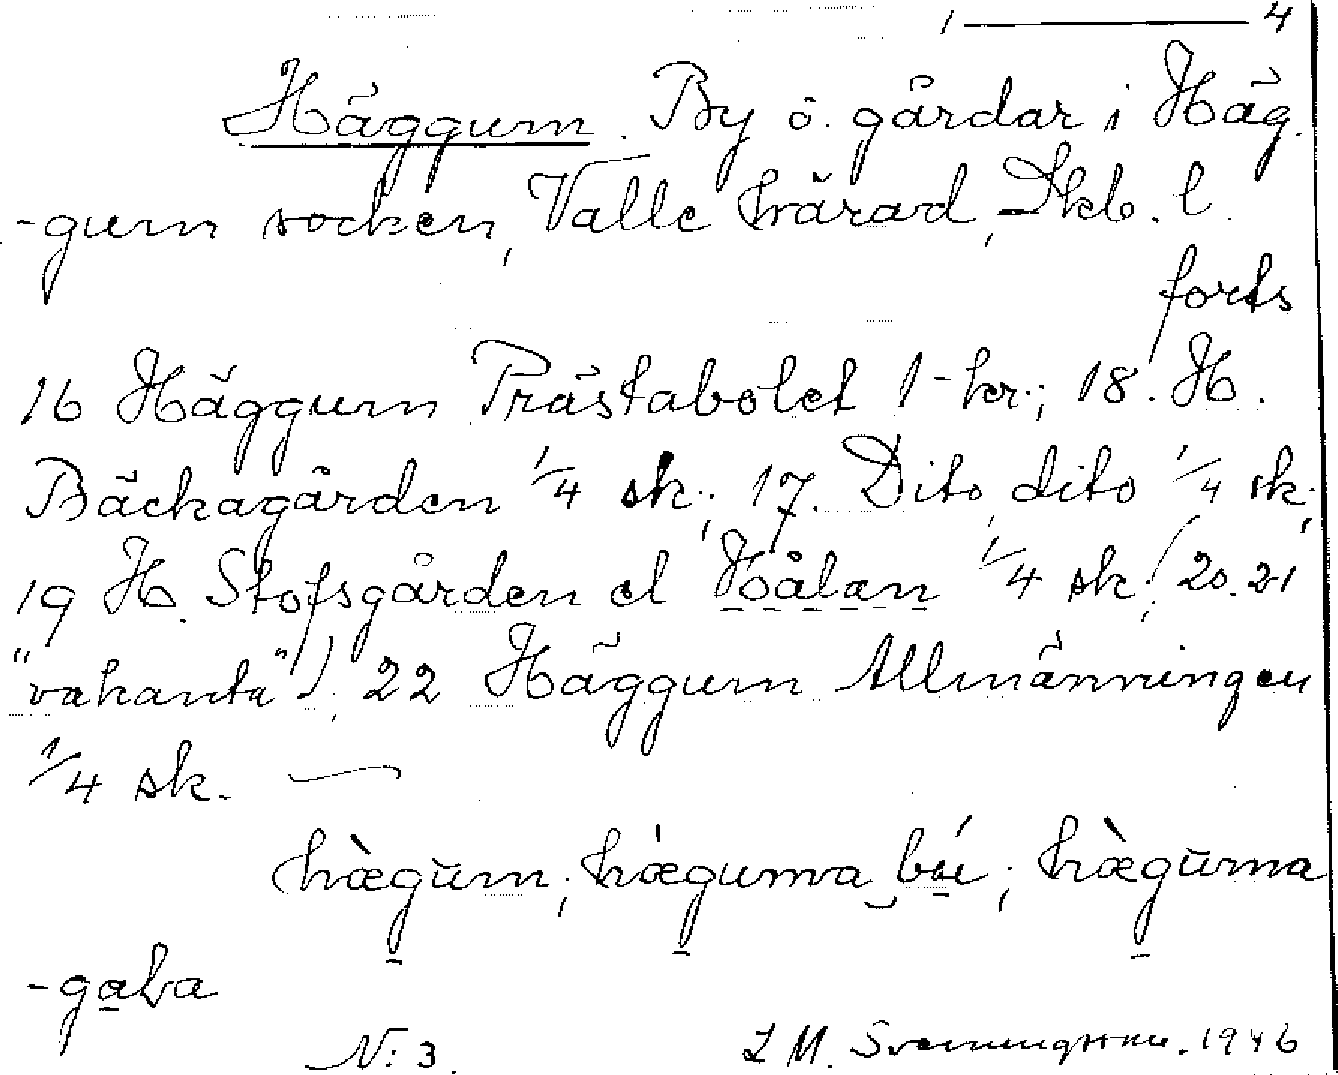 1 ——— 4
Häggum. By o. gårdar i Häg-
-gum socken, Valle härad, Skb. l.
forts
16 Häggum Prästabolet 1 kr.; 18. H.
Bäckagården 1/4 sk.; 17. Dito, dito 1/4 sk;
19 H. Stofsgården el Hålan 1/4 sk; (20. 21
"vakanta"). 22 Häggum Allmänningen
1/4 sk. —
hægum; hæguma bæi; hæguma
-gaba
N: 3. L M. Svenungsson. 1946